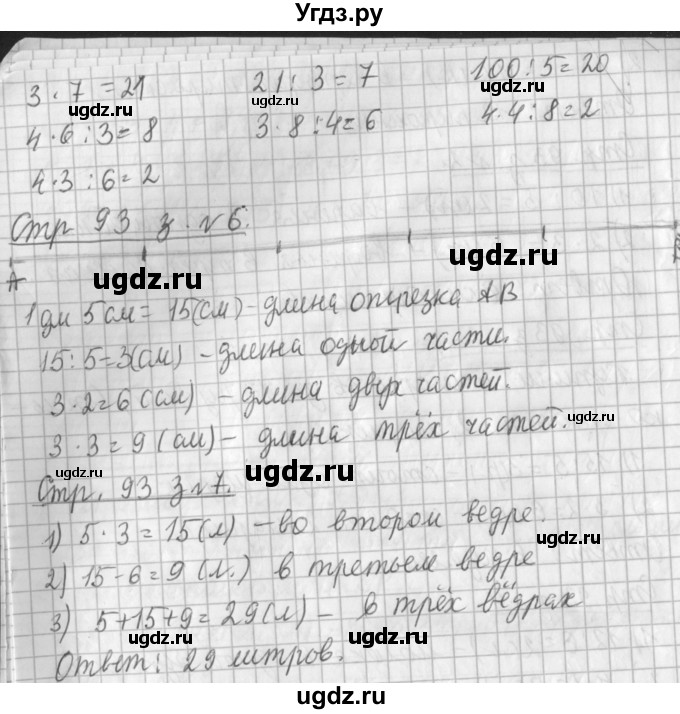 Угдз.ру
3 · 7 = 21 21 : 3 = 7 100 : 5 = 20
ugdz.ru ugdz.ru ugdz.ru
4 · 6 : 3 = 8 3 · 8 : 4 = 6 4 · 4 : 8 = 2
4 · 3 : 6 = 2
Стр 93 з. №6.
А
ugdz.ru ugdz.ru ugdz.ru
1 дм 5 см = 15 (см) – длина отрезка АВ
15 : 5 = 3 (см) – длина одной части.
3 · 2 = 6 (см) – длина двух частей.
3 · 3 = 9 (см) – длина трёх частей.
ugdz.ru ugdz.ru ugdz.ru
Стр. 93 з №7.
1) 5 · 3 = 15 (л) – во втором ведре.
2) 15 - 6 = 9 (л.) в третьем ведре
ugdz.ru ugdz.ru ugdz.ru
3) 5 + 15 + 9 = 29 (л) – в трёх вёдрах
Ответ: 29 литров.
ugdz.ru ugdz.ru ugdz.ru
ugdz.ru